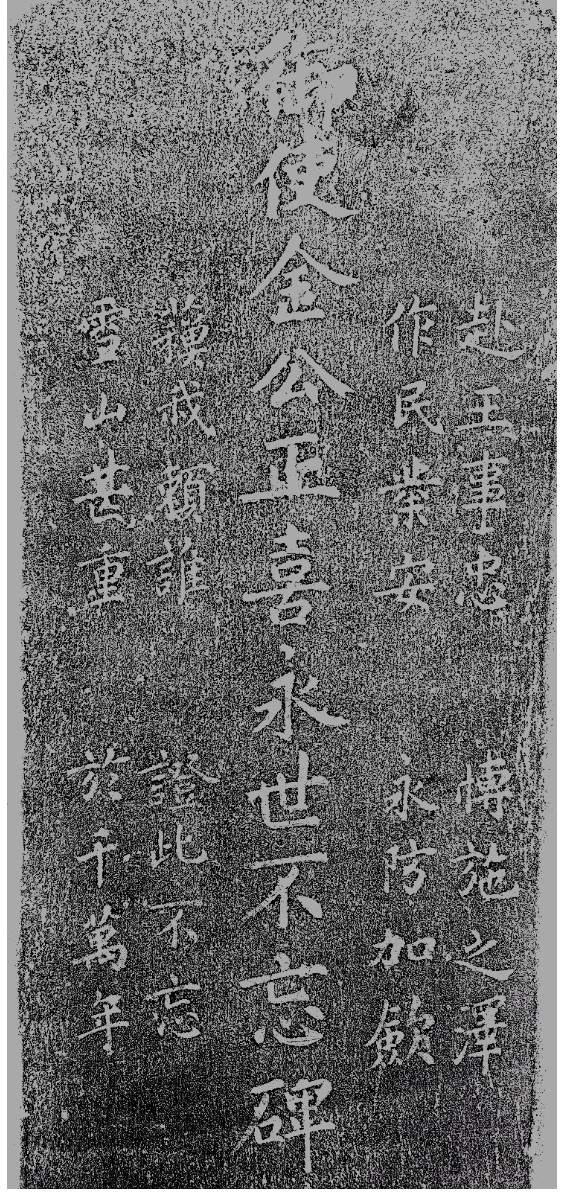 赴王事忠 博施之澤
作民業安 永防加歛
御使金公正喜永世不忘碑
戒頼誰 證此不忘
雪山甚重 於千萬年